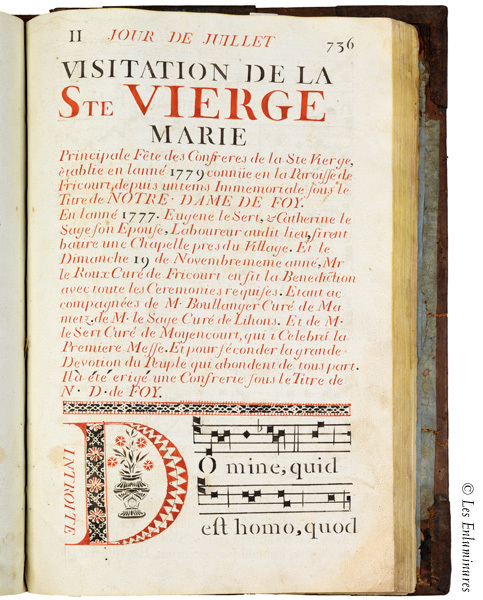 II JOUR DE JUILLET 736
VISITATION DE LA
STE VIERGE
MARIE
Principale Fête des Confreres de la Ste Vierge,
établie en lanné 1779 connüe en la Paroisse de
Fricourt, depuis un tems Immemoriale sous le
Titre de NOTRE · DAME DE FOY.
En lanné 1777. Eugene le Sert, & Catherine le
Sage son Epouse, Laboureur audit lieu, firent
batire une Chapelle pres du Village. Et le
Dimanche 19 de Novembre meme anné, Mr
le Roux Curé de Fricourt en fit la Benediction
avec toute les Ceremonies requises. Etant ac
compagnées de M· Boullanger Curé de Ma
metz, de M· le Sage Curé de Lihons. Et de M·
le Sert Curé de Moyencourt, qui i Celebra la
Premiere Messe. Et pour séconder la grande
Devotion du Peuple qui abondent de tous part.
Il à été erigé une Confrerie sous le Titre de
N · D · de FOY.
INTROITE
D
O mine, quid
est homo, quod
© Les Enluminures